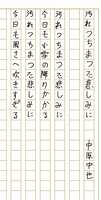 汚れつちまつた悲しみに　　中原中也
汚れつちまつた悲しみに
今日も小雪の降りかかる
汚れつちまつた悲しみに
今日も風さへ吹きすぎる